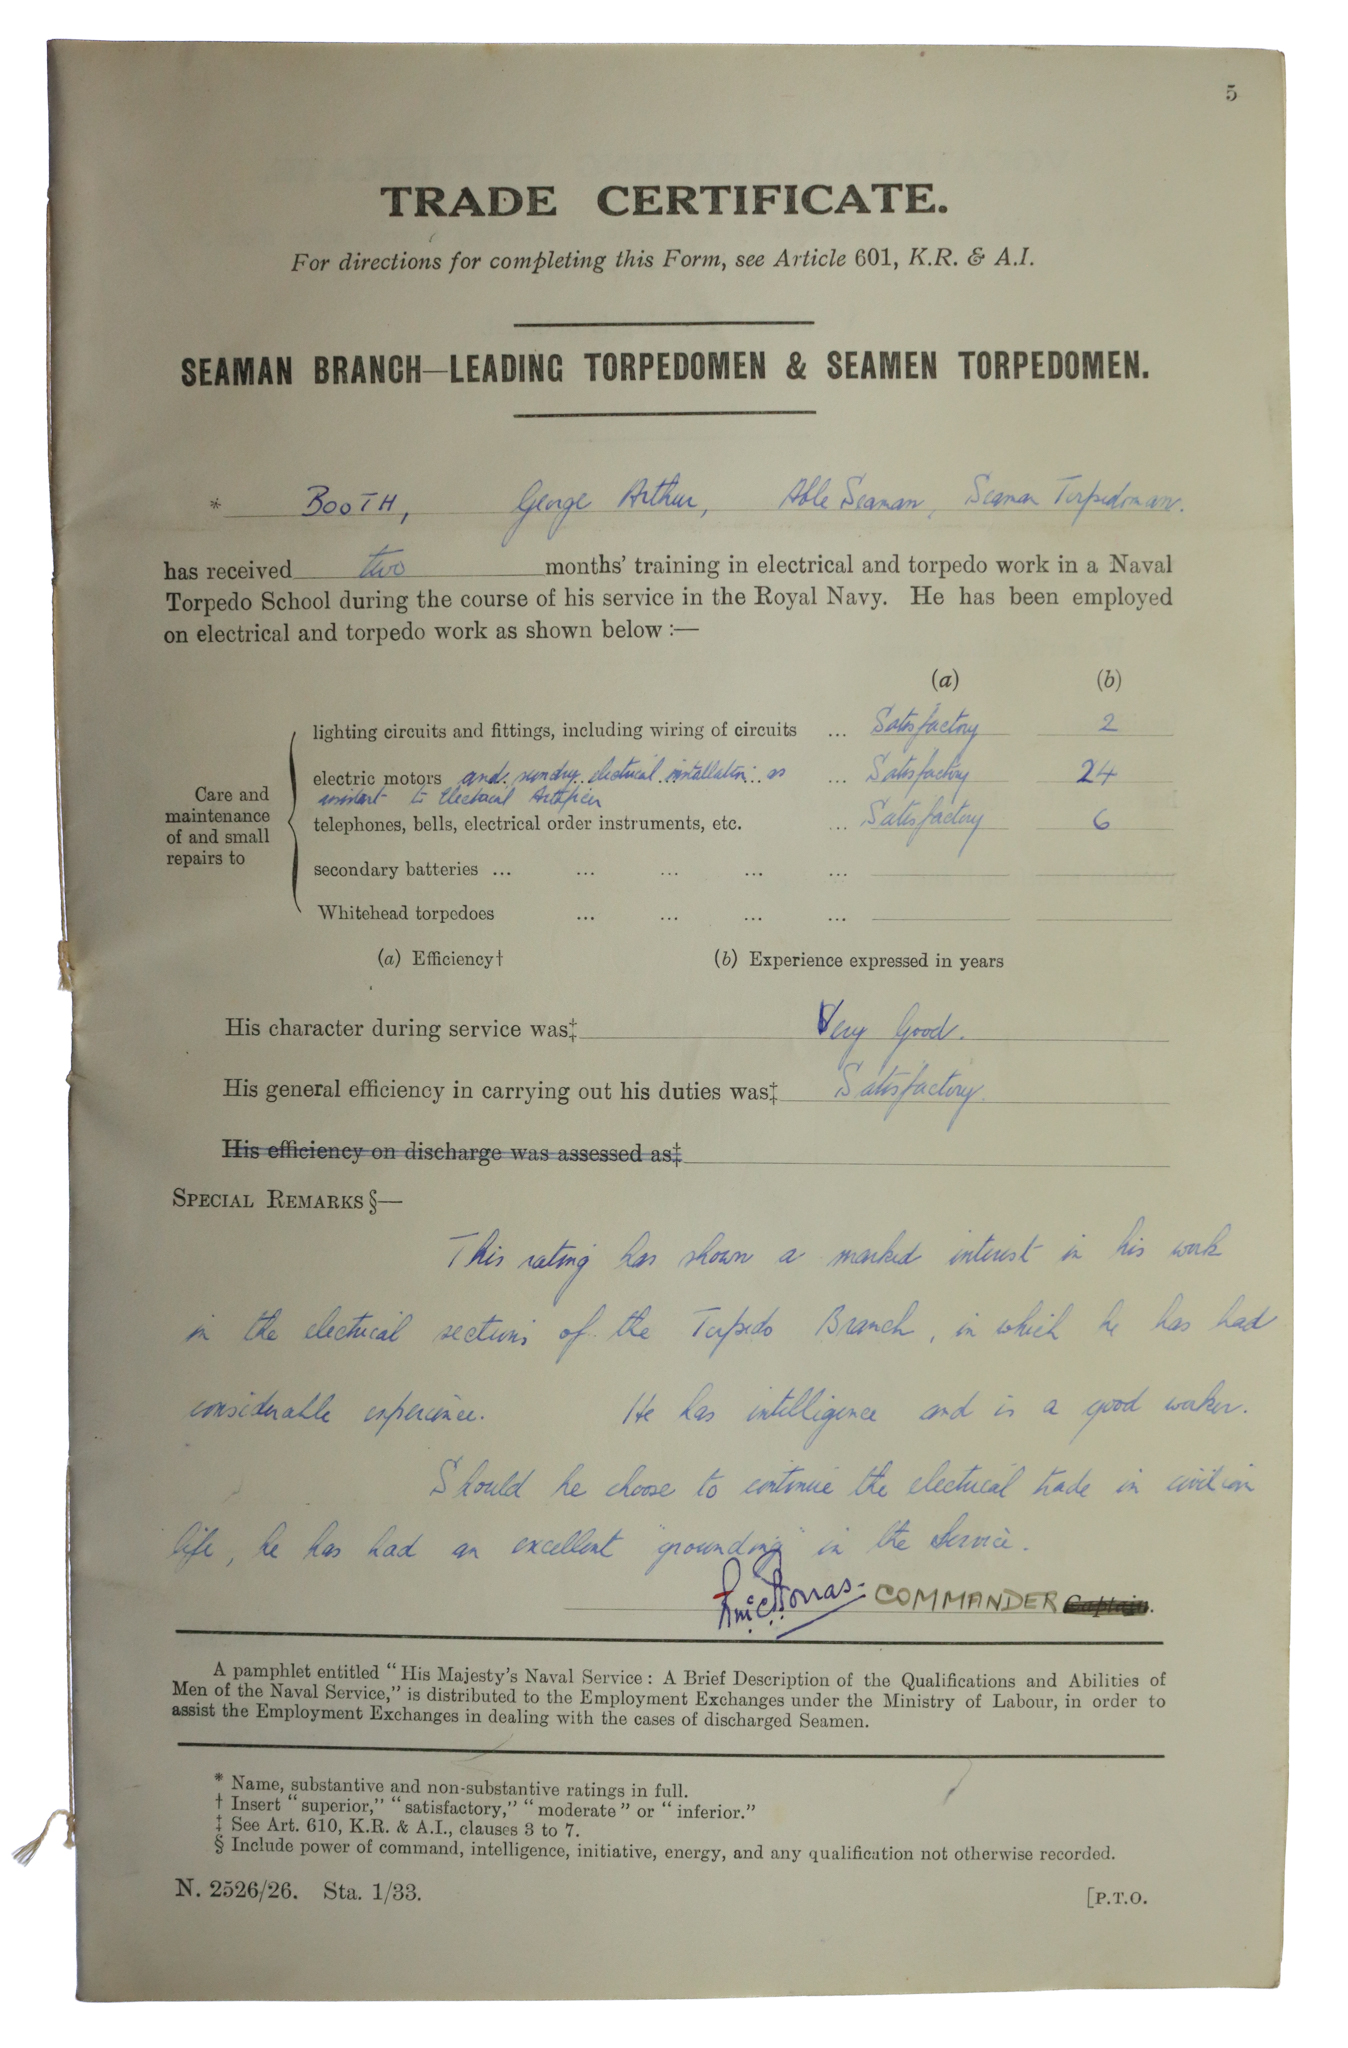 5
TRADE CERTIFICATE.
For directions for completing this Form, see Article 601, K.R. & A.I.
SEAMAN BRANCH—LEADING TORPEDOMEN & SEAMEN TORPEDOMEN.
* BOOTH, George Arthur, Able Seaman, Seaman Torpedoman.
has received two months' training in electrical and torpedo work in a Naval
Torpedo School during the course of his service in the Royal Navy. He has been employed
on electrical and torpedo work as shown below :—
(a) (b)
Care and
maintenance
of and small
repairs to
lighting circuits and fittings, including wiring of circuits ... Satisfactory 2
electric motors and sundry electrical installation as ... Satisfactory 24
assistant to Electrical Artificer
telephones, bells, electrical order instruments, etc. ... Satisfactory 6
secondary batteries ... ... ... ... ...
Whitehead torpedoes ... ... ... ...
(a) Efficiency† (b) Experience expressed in years
His character during service was‡ Very Good.
His general efficiency in carrying out his duties was‡ Satisfactory.
His efficiency on discharge was assessed as‡
SPECIAL REMARKS §—
This rating has shown a marked interest in his work
in the electrical sections of the Torpedo Branch, in which he has had
considerable experience. He has intelligence and is a good worker.
Should he choose to continue the electrical trade in civilian
life, he has had an excellent "grounding" in the Service.
COMMANDER Captain.
A pamphlet entitled "His Majesty's Naval Service : A Brief Description of the Qualifications and Abilities of
Men of the Naval Service," is distributed to the Employment Exchanges under the Ministry of Labour, in order to
assist the Employment Exchanges in dealing with the cases of discharged Seamen.
* Name, substantive and non-substantive ratings in full.
† Insert "superior," "satisfactory," "moderate" or "inferior."
‡ See Art. 610, K.R. & A.I., clauses 3 to 7.
§ Include power of command, intelligence, initiative, energy, and any qualification not otherwise recorded.
N. 2526/26. Sta. 1/33.
[P.T.O.